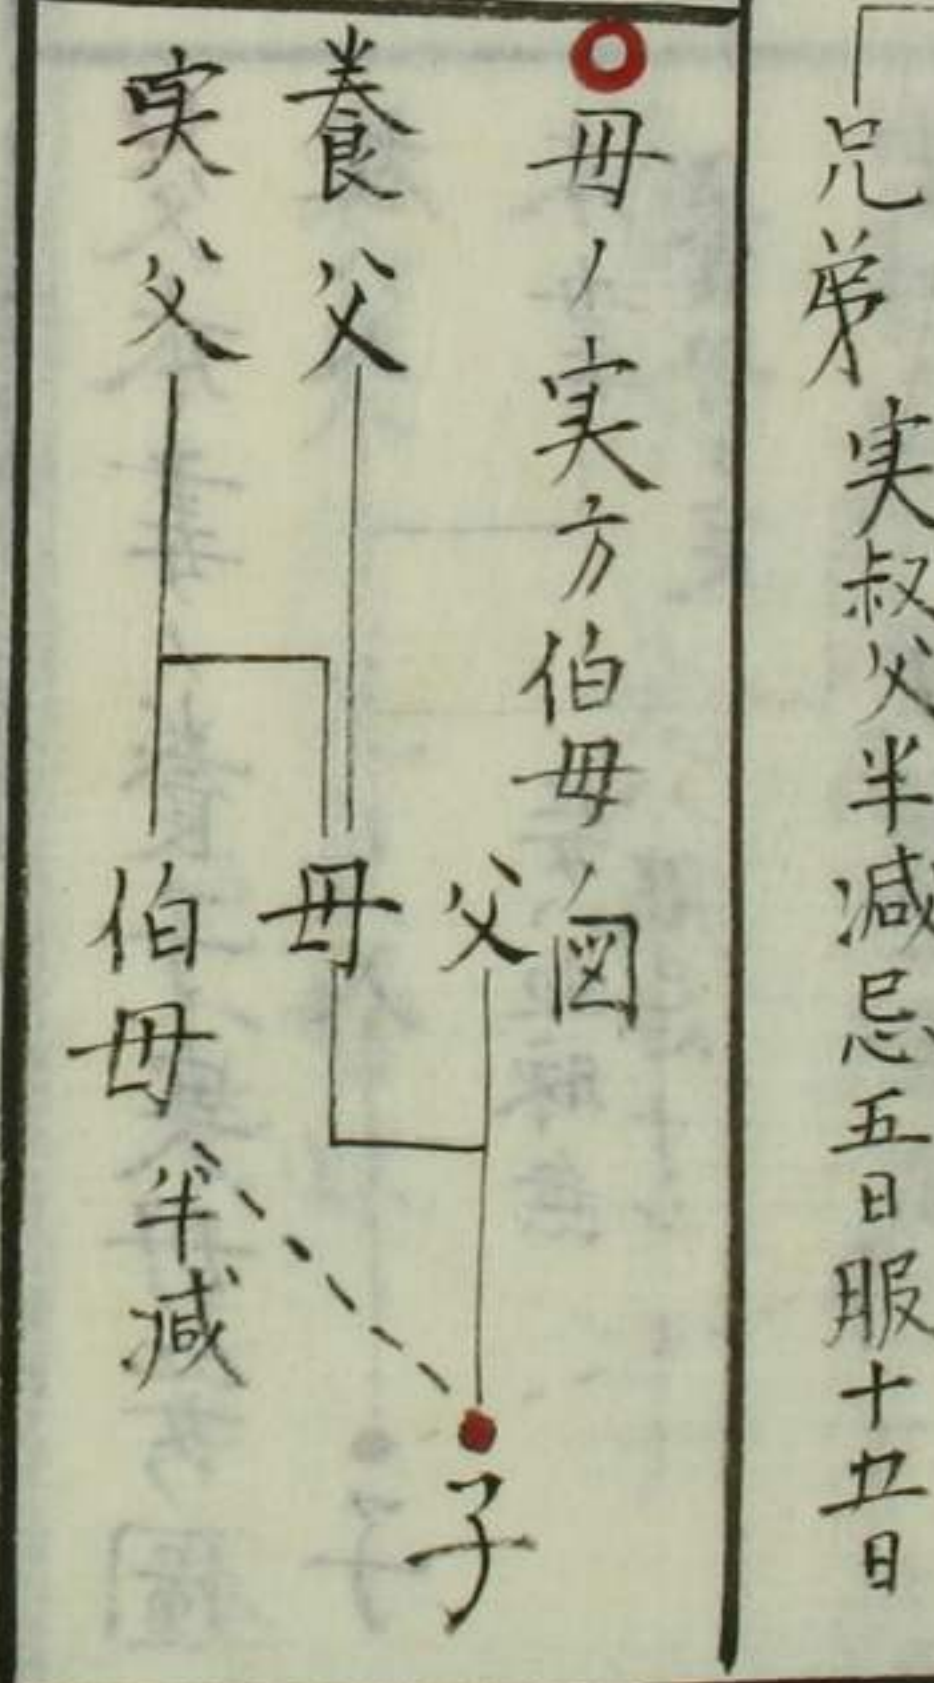 兄弟
実叔父半減忌五日服十五日
母ノ実方伯母ノ図
父
子
養父
母
実父
伯母半減